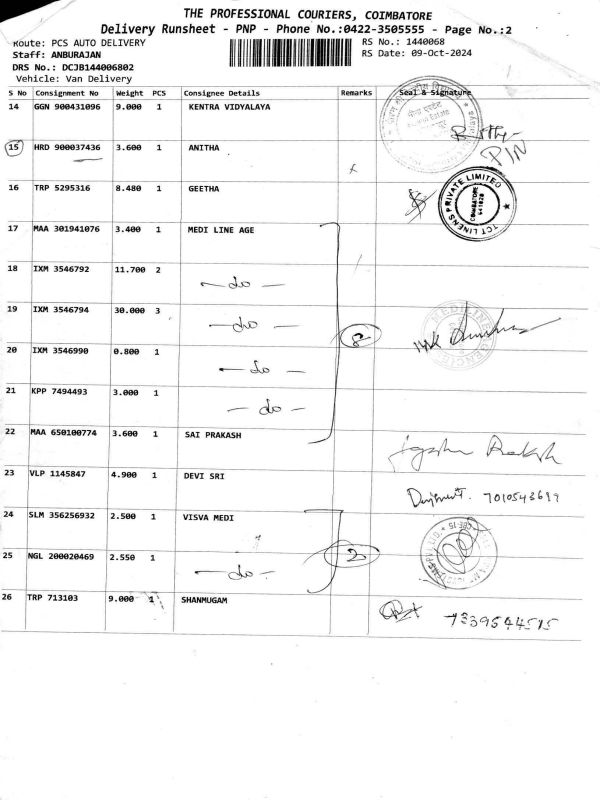 THE PROFESSIONAL COURIERS, COIMBATORE
Delivery Runsheet - PNP - Phone No.:0422-3505555 - Page No.:2
Route: PCS AUTO DELIVERY
RS No.: 1440068
Staff: ANBURAJAN
RS Date: 09-Oct-2024
DRS No.: DCJB144006802
Vehicle: Van Delivery
S No Consignment No Weight PCS Consignee Details Remarks Seal & Signature
14 GGN 900431096 9.000 1 KENTRA VIDYALAYA
15 HRD 900037436 3.600 1 ANITHA
16 TRP 5295316 8.480 1 GEETHA
TCT LINENS PRIVATE LIMITED
COIMBATORE
641028
17 MAA 301941076 3.400 1 MEDI LINE AGE
18 IXM 3546792 11.700 2 -do-
19 IXM 3546794 30.000 3 -do-
20 IXM 3546990 0.800 1 -do-
21 KPP 7494493 3.000 1 -do-
22 MAA 650100774 3.600 1 SAI PRAKASH
23 VLP 1145847 4.900 1 DEVI SRI
24 SLM 356256932 2.500 1 VISVA MEDI
25 NGL 200020469 2.550 1 -do- 2
26 TRP 713103 9.000 1 SHANMUGAM